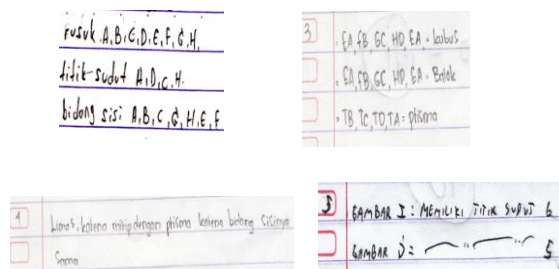 rusuk A,B,C,D,E,F,G,H,
titik sudut A,D,C,H.
bidang sisi A,B,C,G,H,E,F
3
. EA, FB, GC, HD, EA = kubus
. EA, FB, GC, HD, EA = Balok
. TB, TC, TD, TA = plisma
4
Limas, karena mirip dengan plisma karena bidang sisinya
Sama
5
GAMBAR I : MEMILIKI TITIK SUDUT 6
GAMBAR J = " " 5